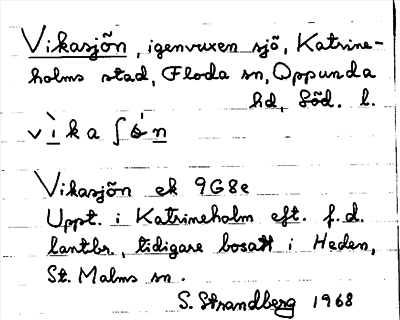 Vikasjön, igenvuxen sjö, Katrine-
holms stad, Floda sn, Oppunda
hd, Söd. l.
Vikasjön ek 9G8e
Uppt. i Katrineholm eft. f.d.
lantbr., tidigare bosatt i Heden,
St. Malms sn.
S. Strandberg 1968